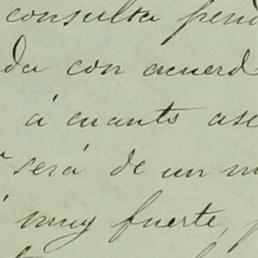 consulta pend
da con acuerd
á cuanto ase
será de un m
muy fuerte,